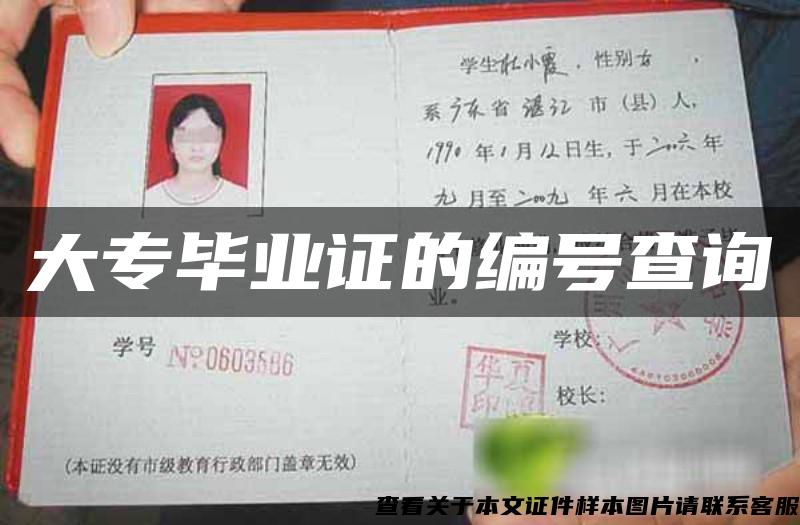 学生杜小霞，性别女，
系广东省湛江市（县）人，
1990年1月12日生，于二〇〇六年
九月至二〇〇九年六月在本校
大专毕业证的编号查询
业。
学号 No.0603586
学校：
华夏
印
校长：
(本证没有市级教育行政部门盖章无效)
查看关于本文证件样本图片请联系客服